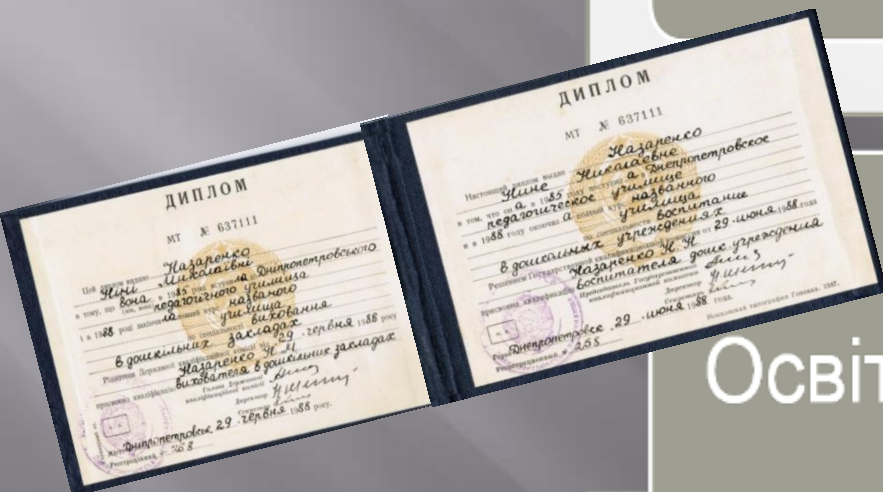 ДИПЛОМ
МТ № 637111
Цей диплом видано Назаренко
Ніні Миколаївні
в тому, що вона в 1985 році вступила до Дніпропетровського
педагогічного училища
і в 1988 році закінчила повний курс названого
училища
за спеціальністю виховання
в дошкільних закладах
Рішенням Державної кваліфікаційної комісії від 29 червня 1988 року
Назаренко Н. М.
присвоєно кваліфікацію вихователя в дошкільних закладах
Голова Державної
кваліфікаційної комісії
Директор
Секретар
Дніпропетровськ 29 червня 1988 року.
Реєстраційний № 268
ДИПЛОМ
МТ № 637111
Настоящий диплом выдан Назаренко
Нине Николаевне
в том, что она в 1985 году поступила в Днепропетровское
педагогическое училище
и в 1988 году окончила полный курс названного
училища
по специальности воспитание
в дошкольных учреждениях
Решением Государственной квалификационной комиссии от 29 июня 1988 года
Назаренко Н. Н.
присвоена квалификация воспитателя дошк. учреждений
Председатель Государственной
квалификационной комиссии
Директор
Секретарь
Днепропетровск, 29 июня 1988 года.
Регистрационный № 268
Московская типография Гознака. 1987.
Освіт